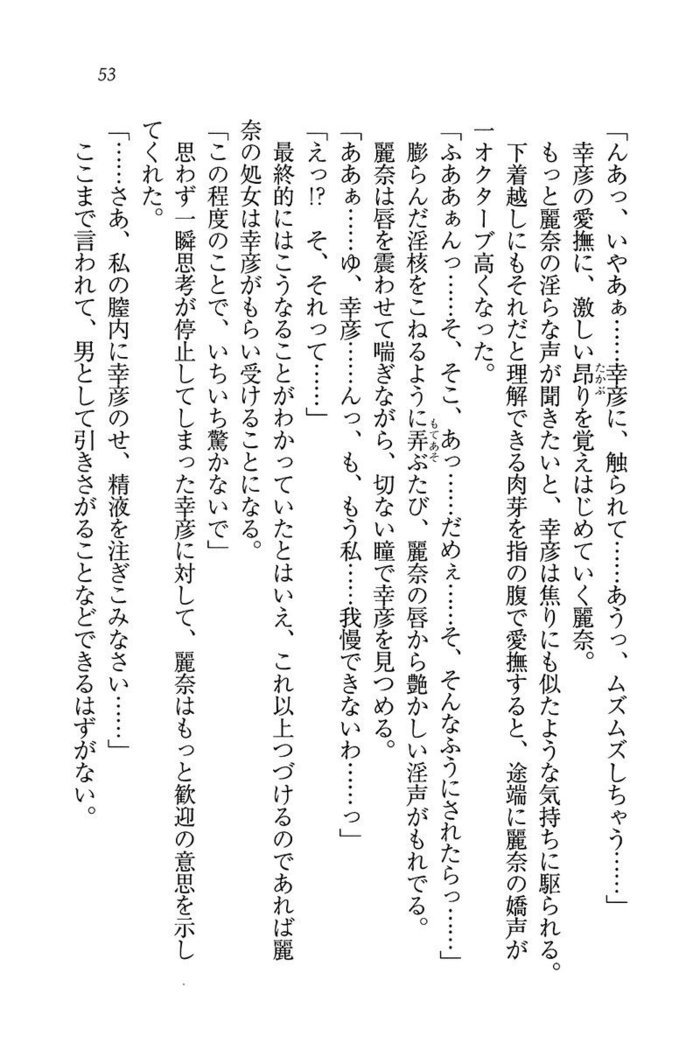 53
「んあっ、いやあぁ……幸彦に、触られて……あうっ、ムズムズしちゃう……」
幸彦の愛撫に、激しい昂りを覚えはじめていく麗奈。
もっと麗奈の淫らな声が聞きたいと、幸彦は焦りにも似たような気持ちに駆られる。
下着越しにもそれだと理解できる肉芽を指の腹で愛撫すると、途端に麗奈の嬌声が
一オクターブ高くなった。
「ふああぁんっ……そ、そこ、あっ……だめぇ……そ、そんなふうにされたらっ……」
膨らんだ淫核をこねるように弄ぶたび、麗奈の唇から艶かしい淫声がもれでる。
麗奈は唇を震わせて喘ぎながら、切ない瞳で幸彦を見つめる。
「ああぁ……ゆ、幸彦……んっ、も、もう私……我慢できないわ……っ」
「えっ!? そ、それって……」
最終的にはこうなることがわかっていたとはいえ、これ以上つづけるのであれば麗
奈の処女は幸彦がもらい受けることになる。
「この程度のことで、いちいち驚かないで」
思わず一瞬思考が停止してしまった幸彦に対して、麗奈はもっと歓迎の意思を示し
てくれた。
「……さあ、私の膣内に幸彦のせ、精液を注ぎこみなさい……」
ここまで言われて、男として引きさがることなどできるはずがない。